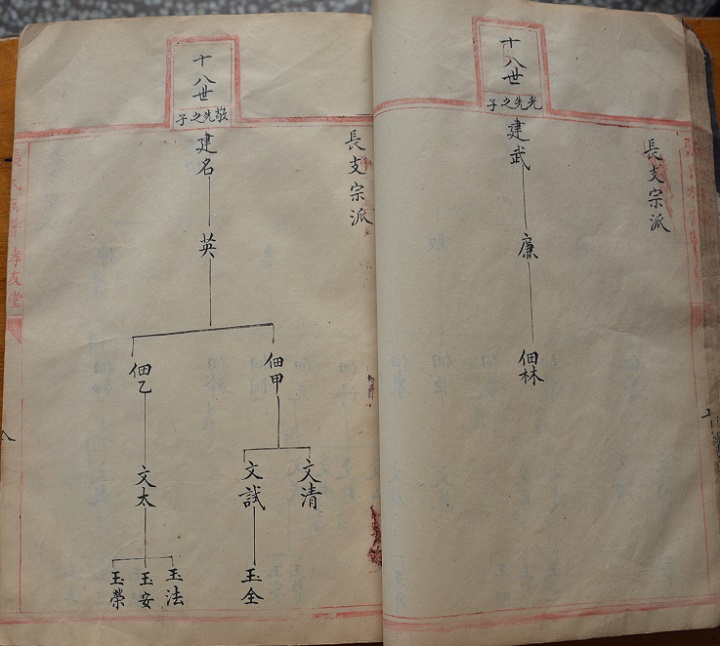 十八世
光先之子
長支宗派
建武
廉
佃林
十八世
敬先之子
長支宗派
建名
英
佃甲
佃乙
文清
文試
文太
玉全
玉法
玉安
玉榮